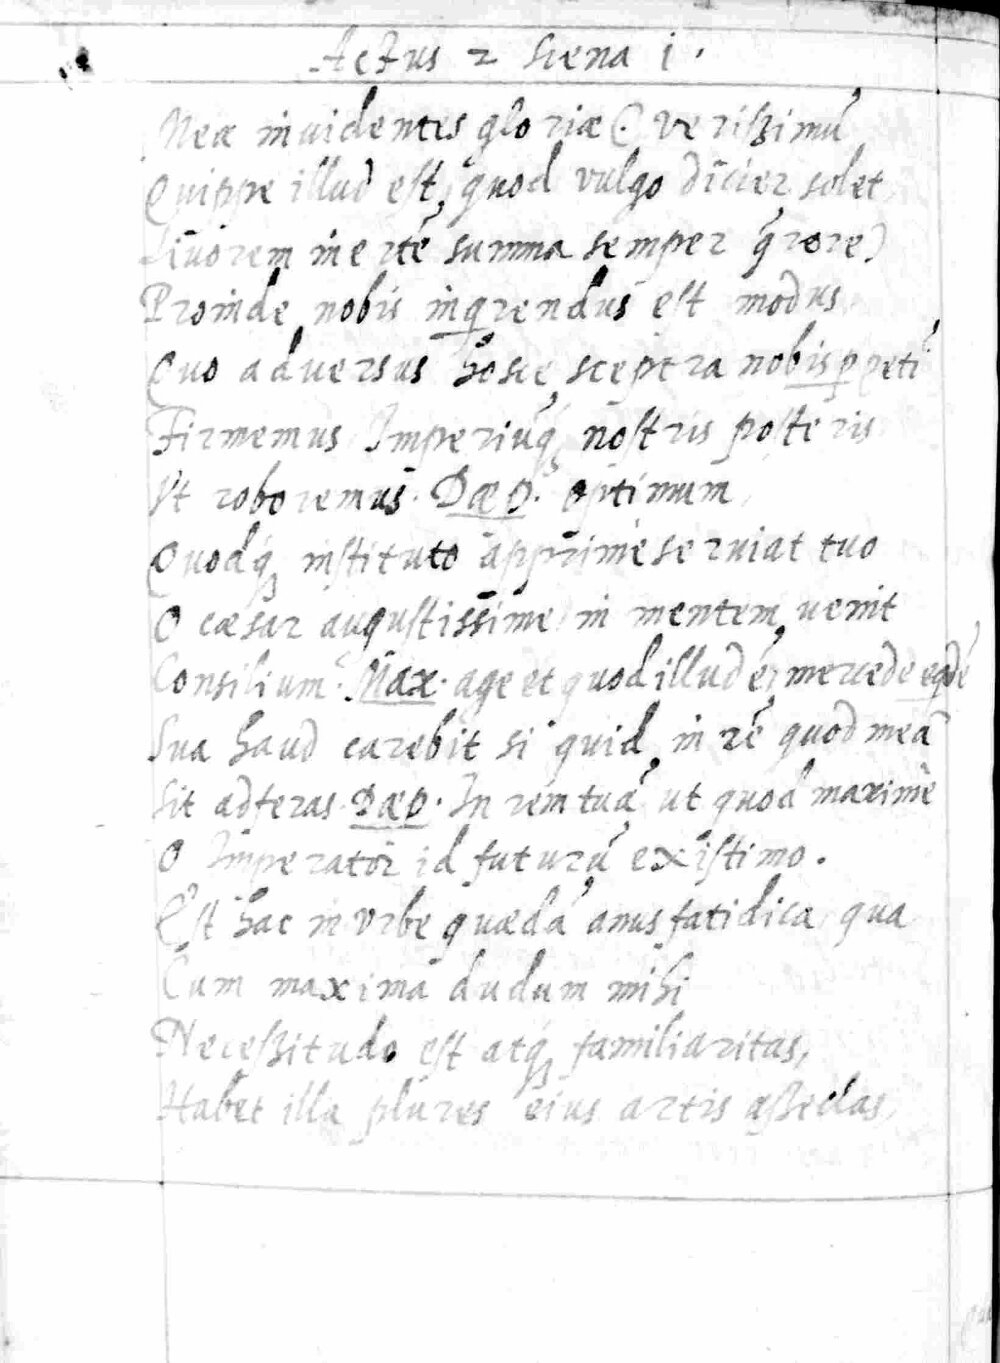 Actus 2 Scena i.
Meæ invidentes gloriæ (verißimũ
Quippe illud est, quod vulgo dicier solet
Livorem inertẽ summa semper q̃rere)
Proinde nobis inq̃rendus est modus
Quo adversus hosce sceptra nobis ppetĩ
Firmemus Imperiũq́ꝫ nostris posteris
Vt roboremus. DæO. optimum
Quodq́ꝫ instituto apprimè serviat tuo
O cæsar augustissime in mentem venit
Consilium. Max. age et quod illud ẽ, mercede eqdẽ
Sua haud carebit si quid in rẽ quod meã
Sit adferas. DæO. In rem tuã ut quod maximè
O Imperator id futurũ existimo.
Est hac in vrbe quædã anus fatidica qua
Cum maxima dudum mihi
Neceßitudo est atq́ꝫ familiaritas,
Habet illa plures eius artis aßeclas,